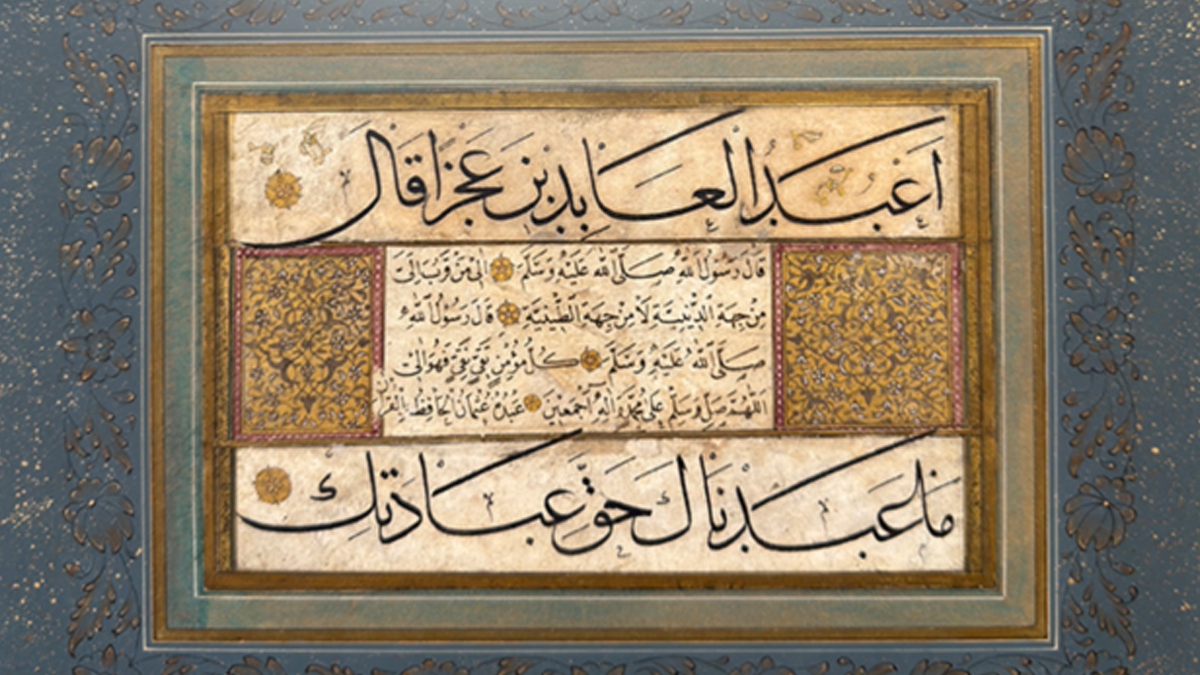 اَعْبَدُ العَابِدِينَ عَجْزًا قَالَ
قَالَ رَسُولُ اللهِ صَلَّى اللهُ عَلَيْهِ وَسَلَّمَ اٰلِى مَنْ قَرَبَ اِلَىَّ
مِنْ جِهَةِ الدِّينِيَّةِ لَا مِنْ جِهَةِ الطِّينِيَّةِ قَالَ رَسُولُ اللهِ
صَلَّى اللهُ عَلَيْهِ وَسَلَّمَ كُلُّ مُؤْمِنٍ تَقِيٍّ نَقِيٍّ فَهُوَ اٰلِى
اللّٰهُمَّ صَلِّ وَسَلِّمْ عَلٰى مُحَمَّدٍ وَاٰلِهِ اَجْمَعِينَ عَبْدُهُ عُثْمَانُ الْحَافِظُ القُرْاٰنِ
مَا عَبَدْنَاكَ حَقَّ عِبَادَتِكَ